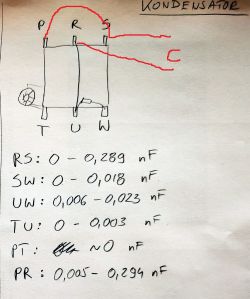 KONDENSATOR
P R S
C
T U W
RS: 0 - 0,289 nF
SW: 0 - 0,018 nF
UW: 0,006 - 0,023 nF
TU: 0 - 0,003 nF
PT: ~0 nF
PR: 0,005 - 0,294 nF